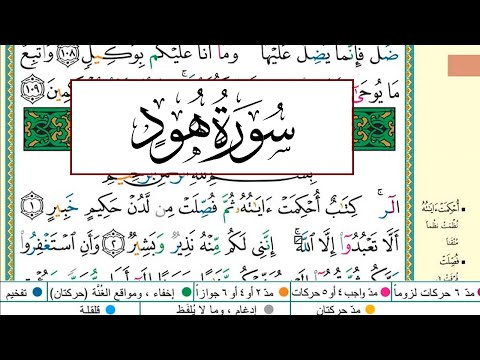 ضَلَّ فَإِنَّمَا يَضِلُّ عَلَيْهَا وَمَا أَنَا۠ عَلَيْكُم بِوَكِيلٍ ١٠٨ وَاتَّبِعْ
مَا يُوحَىٰ
١٠٩
سُورَةُ هُودٍ
الٓر ۚ كِتَٰبٌ أُحْكِمَتْ ءَايَٰتُهُۥ ثُمَّ فُصِّلَتْ مِن لَّدُنْ حَكِيمٍ خَبِيرٍ ١
أَلَّا تَعْبُدُوٓا۟ إِلَّا ٱللَّهَ ۚ إِنَّنِى لَكُم مِّنْهُ نَذِيرٌ وَبَشِيرٌ ٢ وَأَنِ ٱسْتَغْفِرُوا۟
أُحْكِمَتْ ءَايَٰتُهُ
نُظِّمَتْ نَظْمًا
مُتْقَنًا
فُصِّلَتْ
مدّ ٦ حركات لزوماً مدّ ٢ أو ٤ أو ٦ جوازاً إخفاء ، ومواقع الغُنَّة (حركتان) تفخيم
مدّ واجب ٤ أو ٥ حركات مدّ حركتان إدغام ، وما لا يُلفَظ قلقلة